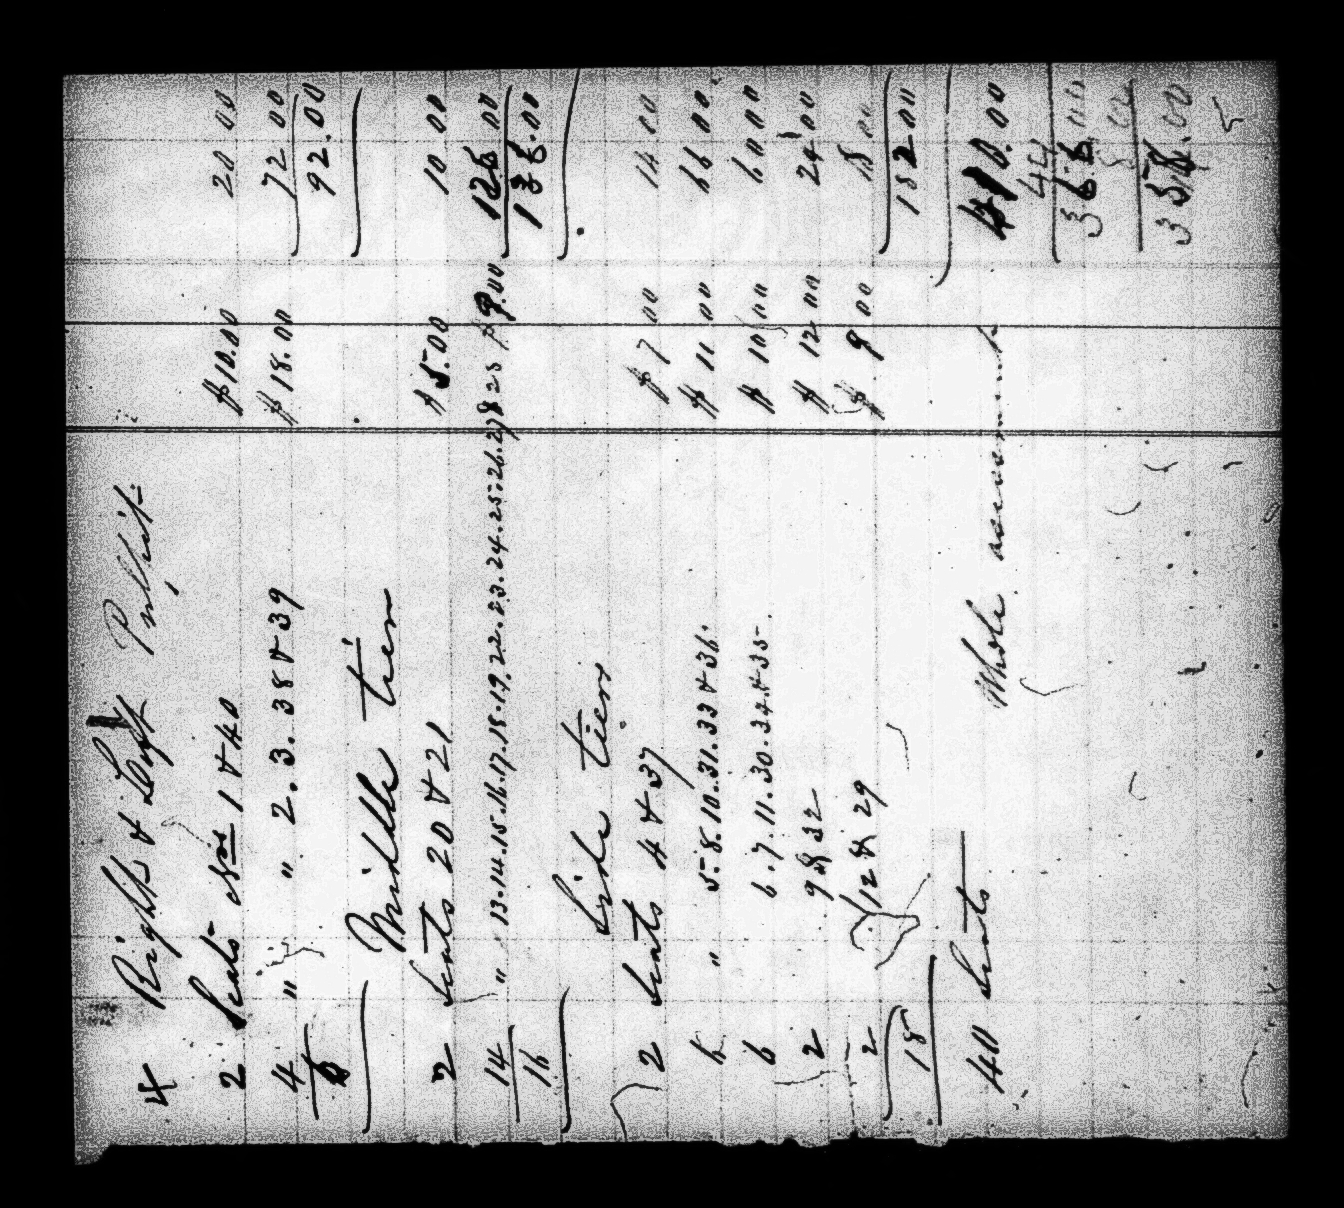 4 Right & Left Pullpit
2 Seats Nos 1 & 40 $10.00 20 00
4 " " 2. 3. 38 & 39 $18.00 72 00
6 92.00
Middle tier
2 Seats 20 & 21 $5.00 10 00
14 " 13.14.15.16.17.18.19.22.23.24.25.26.27 & 28 $9.00 126 00
16 136.00
Side tiers
2 Seats 4 & 37 $7 00 14 00
6 " 5.8.10.31.33 & 36. $11 00 66 00
6 6.7.11.30.34.&35. $10 00 60 00
2 9 & 32 $12 00 24 00
2 12 & 29 $9 00 18 00
18 182 00
40 Seats Whole amount 410.00
44
366.00
8 00
358.00